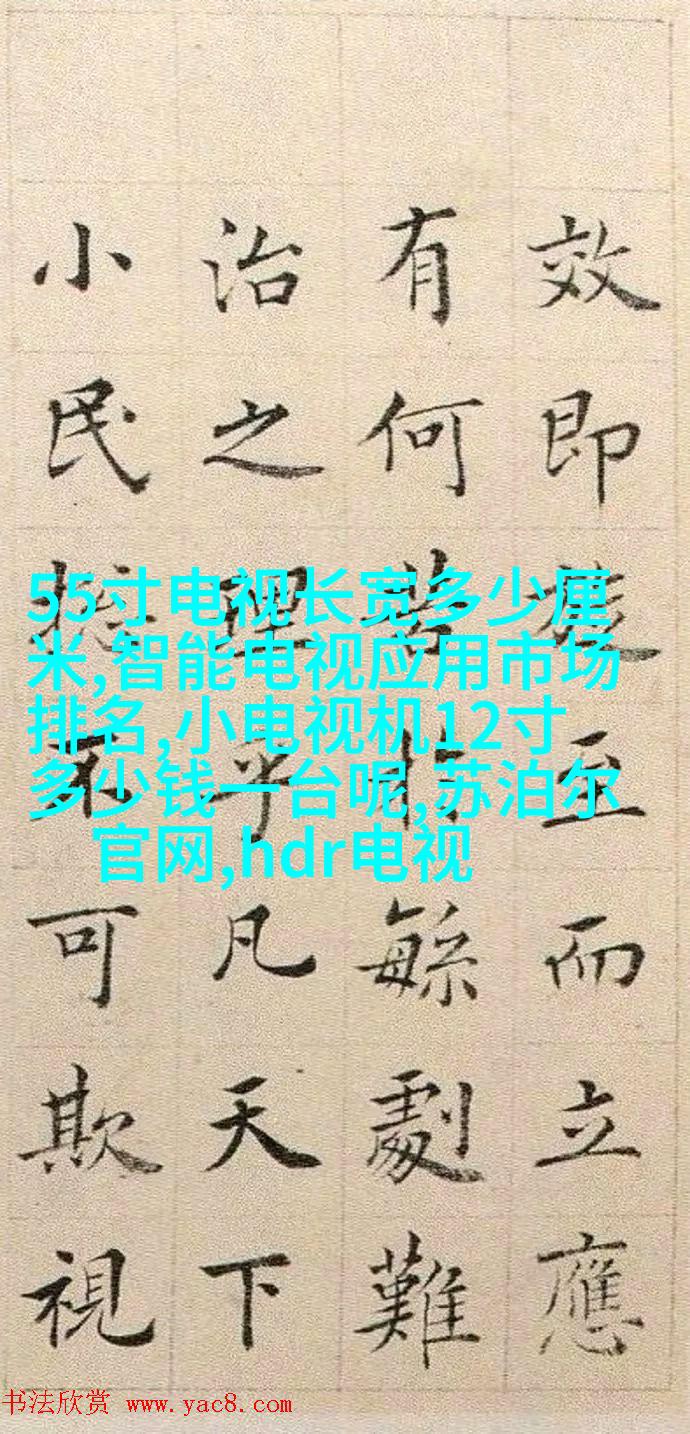 效即至而立應
有何繁劇難
治之理乎凡天下
小民不可欺視
55寸电视长宽多少厘
米,智能电视应用市场
排名,小电视机12寸
多少钱一台呢,苏泊尔
官网,hdr电视
书法欣赏 www.yac8.com